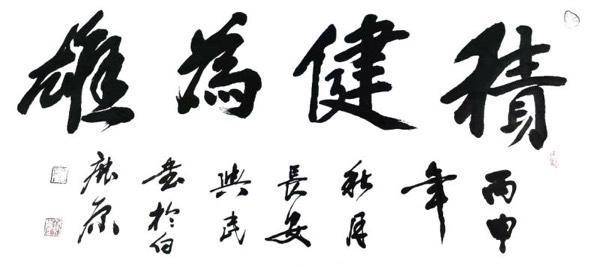 積健為雄
丙申
年
秋月
長安
興民
書於白
鹿原